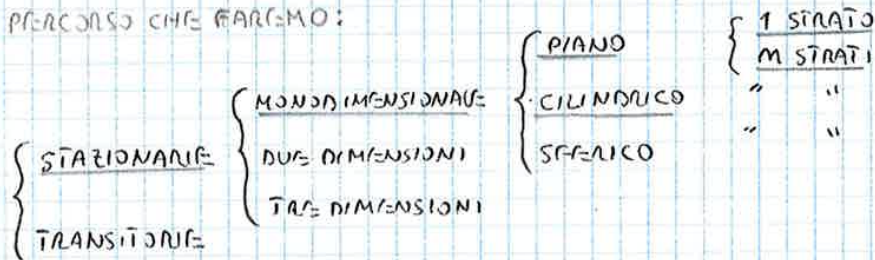 PERCORSO CHE FAREMO:
STAZIONARIE
TRANSITORIE
MONODIMENSIONALE
DUE DIMENSIONI
TRE DIMENSIONI
PIANO
CILINDRICO
SFERICO
1 STRATO
M STRATI
" "
" "